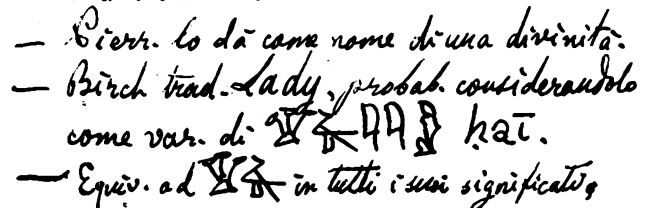 — Pierr. lo dà come nome di una divinità.
— Birch trad. Lady, probab. considerandolo
come var. di 𓄂𓂝𓇋𓇋 ḥaī.
— Equiv. ad 𓄂𓂝 in tutti i suoi significati,